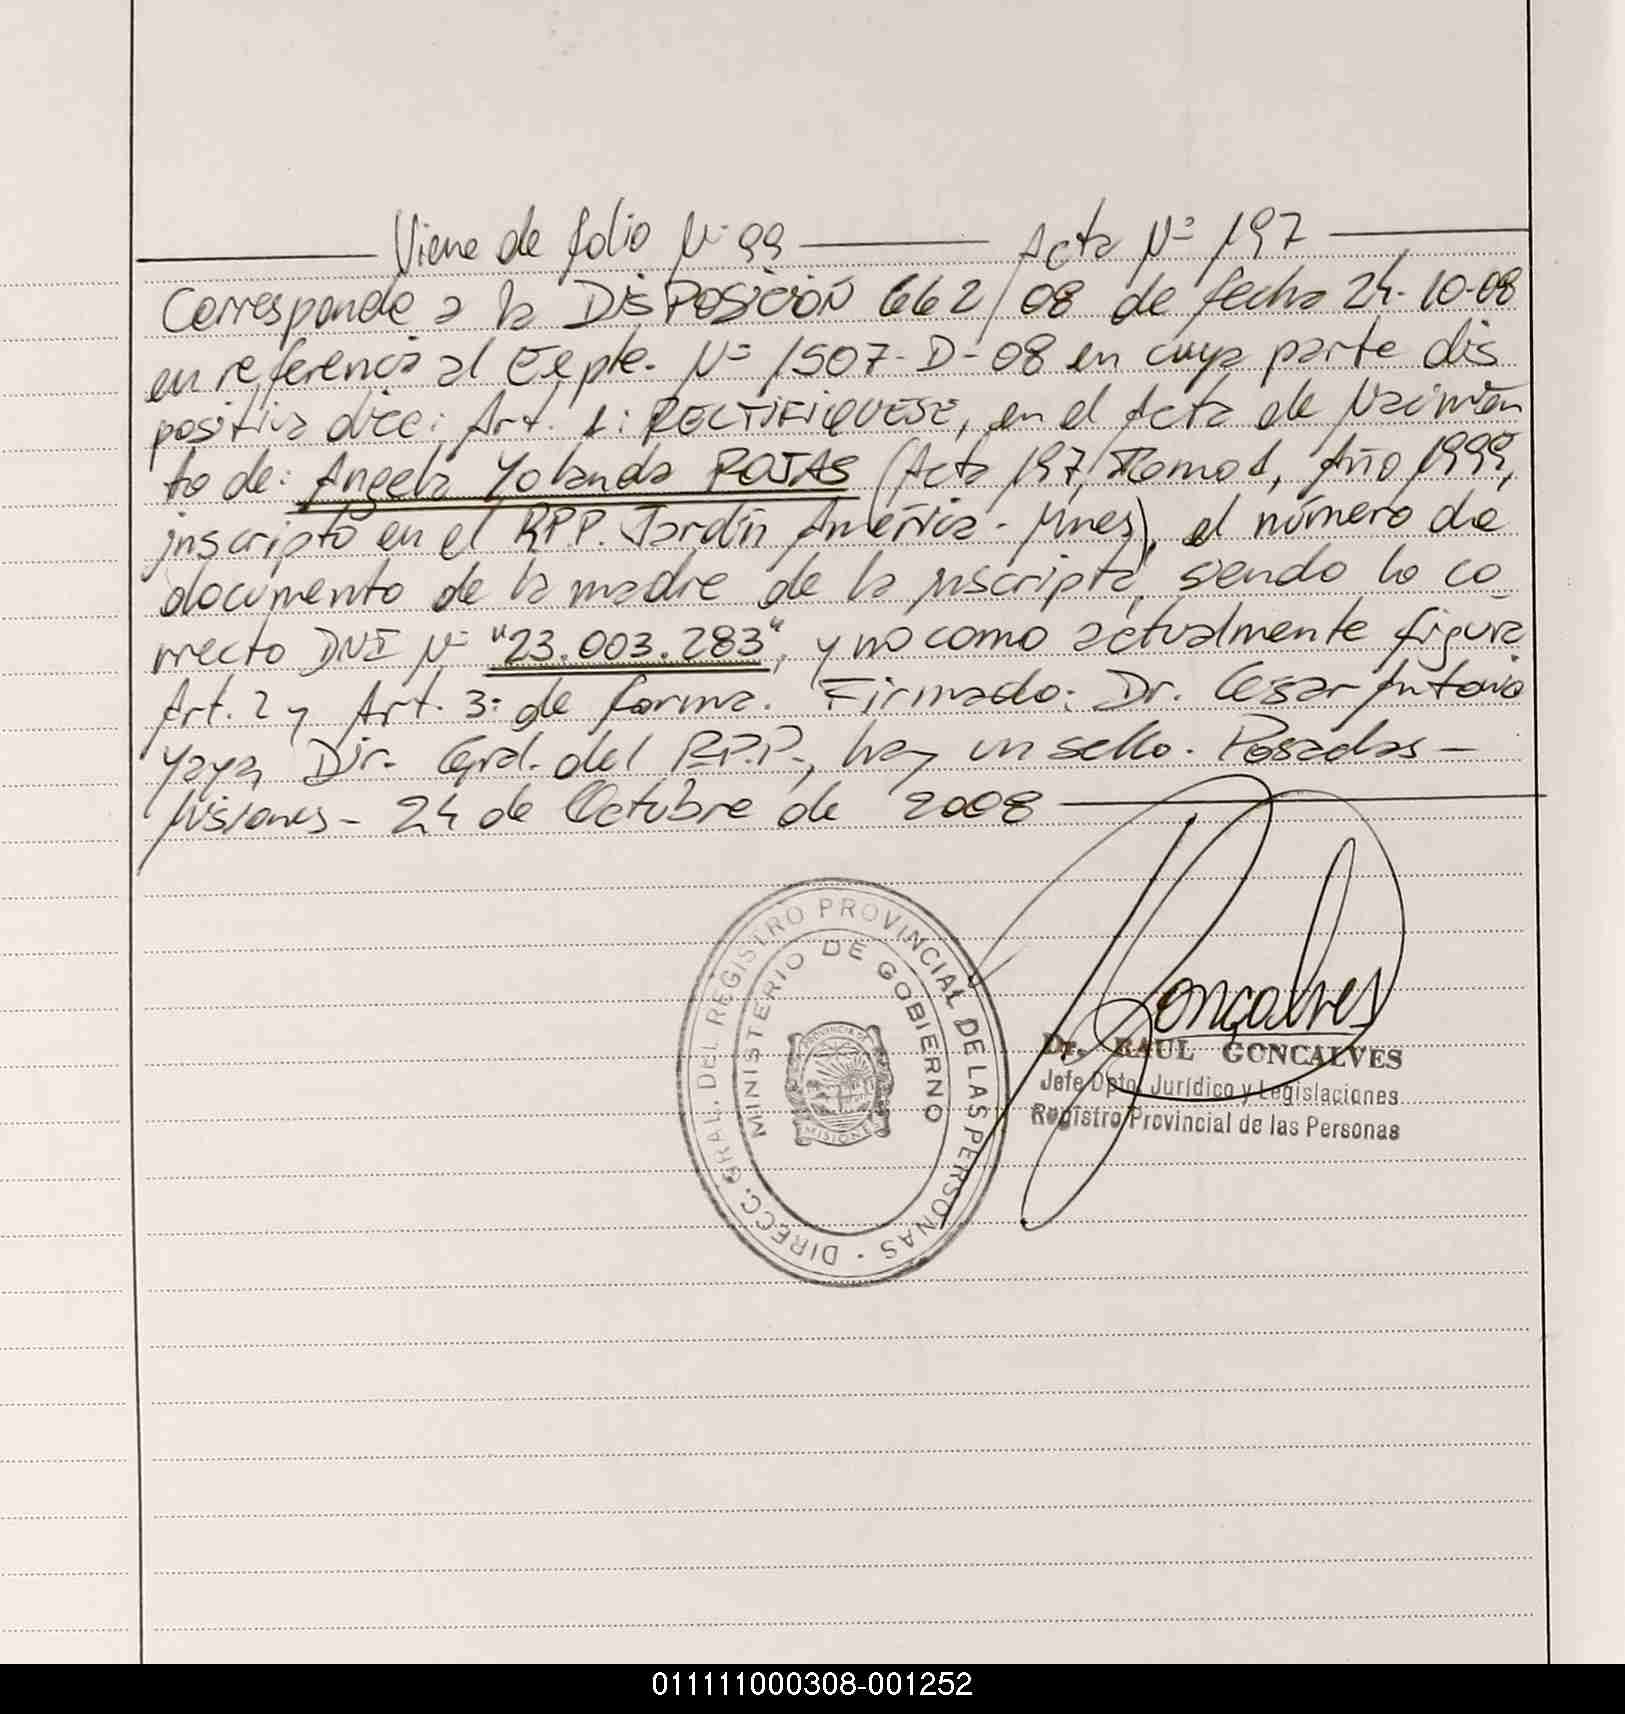 Viene de folio Nº 99 Acta Nº 197
Corresponde a la DISPOSICIÓN 662/08 de fecha 24-10-08
en referencia al Expte. Nº 1507-D-08 en cuya parte dis
positiva dice: Art. 1: RECTIFIQUESE, en el Acta de Nacimien
to de: Angela Yolanda ROJAS (Acta 197, Tomo 1, Año 1999,
inscripto en el R.P.P. Jardín América - Mnes), el número de
documento de la madre de la inscripta, siendo lo co
rrecto DNI Nº "23.003.283", y no como actualmente figura
Art. 2 y Art. 3: de forma. Firmado: Dr. Cesar Antonio
Yaya, Dir. Gral. del R.P.P., hay un sello. Posadas -
Misiones - 24 de Octubre de 2008
DIRECC. GRAL. DEL REGISTRO PROVINCIAL DE LAS PERSONAS
MINISTERIO DE GOBIERNO
PROVINCIA
MISIONES
Gonçalves
Dr. RAUL GONCALVES
Jefe Dpto. Jurídico y Legislaciones
Registro Provincial de las Personas
011111000308-001252